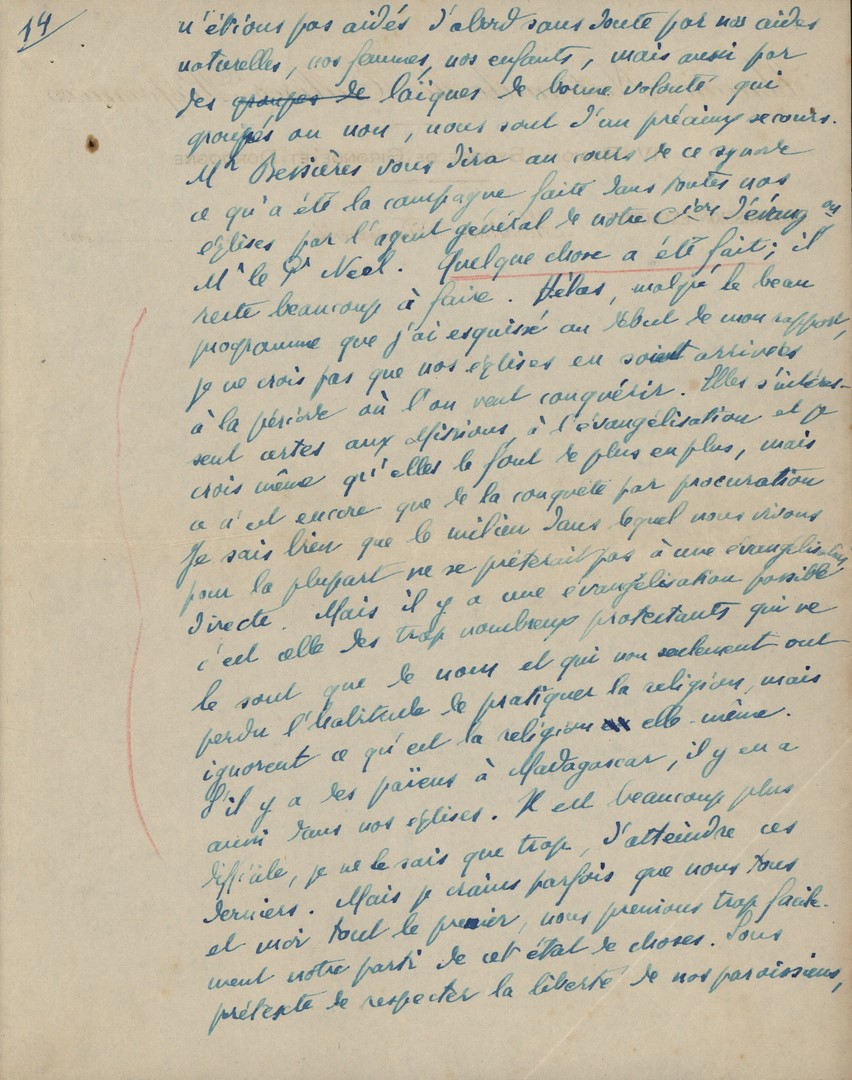 14
n'étions pas aidés d'abord sans doute par nos aides
naturelles, nos femmes, nos enfants, mais aussi par
des groupes de laïques de bonne volonté qui
groupés ou non, nous sont d'un précieux secours.
Mr Bessières vous dira au cours de ce synode
ce qu'a été la campagne faite dans toutes nos
églises par l'agent général de notre Cion d'évangon
Mr le Pr Neel. Quelque chose a été fait ; il
reste beaucoup à faire. Hélas, malgré le beau
programme que j'ai esquissé au début de mon rapport,
je ne crois pas que nos églises en soient arrivées
à la période où l'on veut conquérir. Elles s'intéres-
sent certes aux Missions, à l'évangélisation et je
crois même qu'elles le font de plus en plus, mais
ce n'est encore que de la conquête par procuration
Je sais bien que le milieu dans lequel nous vivons
pour la plupart ne se prêterait pas à une évangélisation
directe. Mais il y a une évangélisation possible
c'est celle des trop nombreux protestants qui ne
le sont que de nom et qui non seulement ont
perdu l'habitude de pratiquer la religion, mais
ignorent ce qu'est la religion elle-même.
S'il y a des païens à Madagascar, il y en a
aussi dans nos églises. Il est beaucoup plus
difficile, je ne le sais que trop, d'atteindre ces
derniers. Mais je crains parfois que nous tous
et moi tout le premier, nous prenions trop facile-
ment notre parti de cet état de choses. Sous
prétexte de respecter la liberté de nos paroissiens,